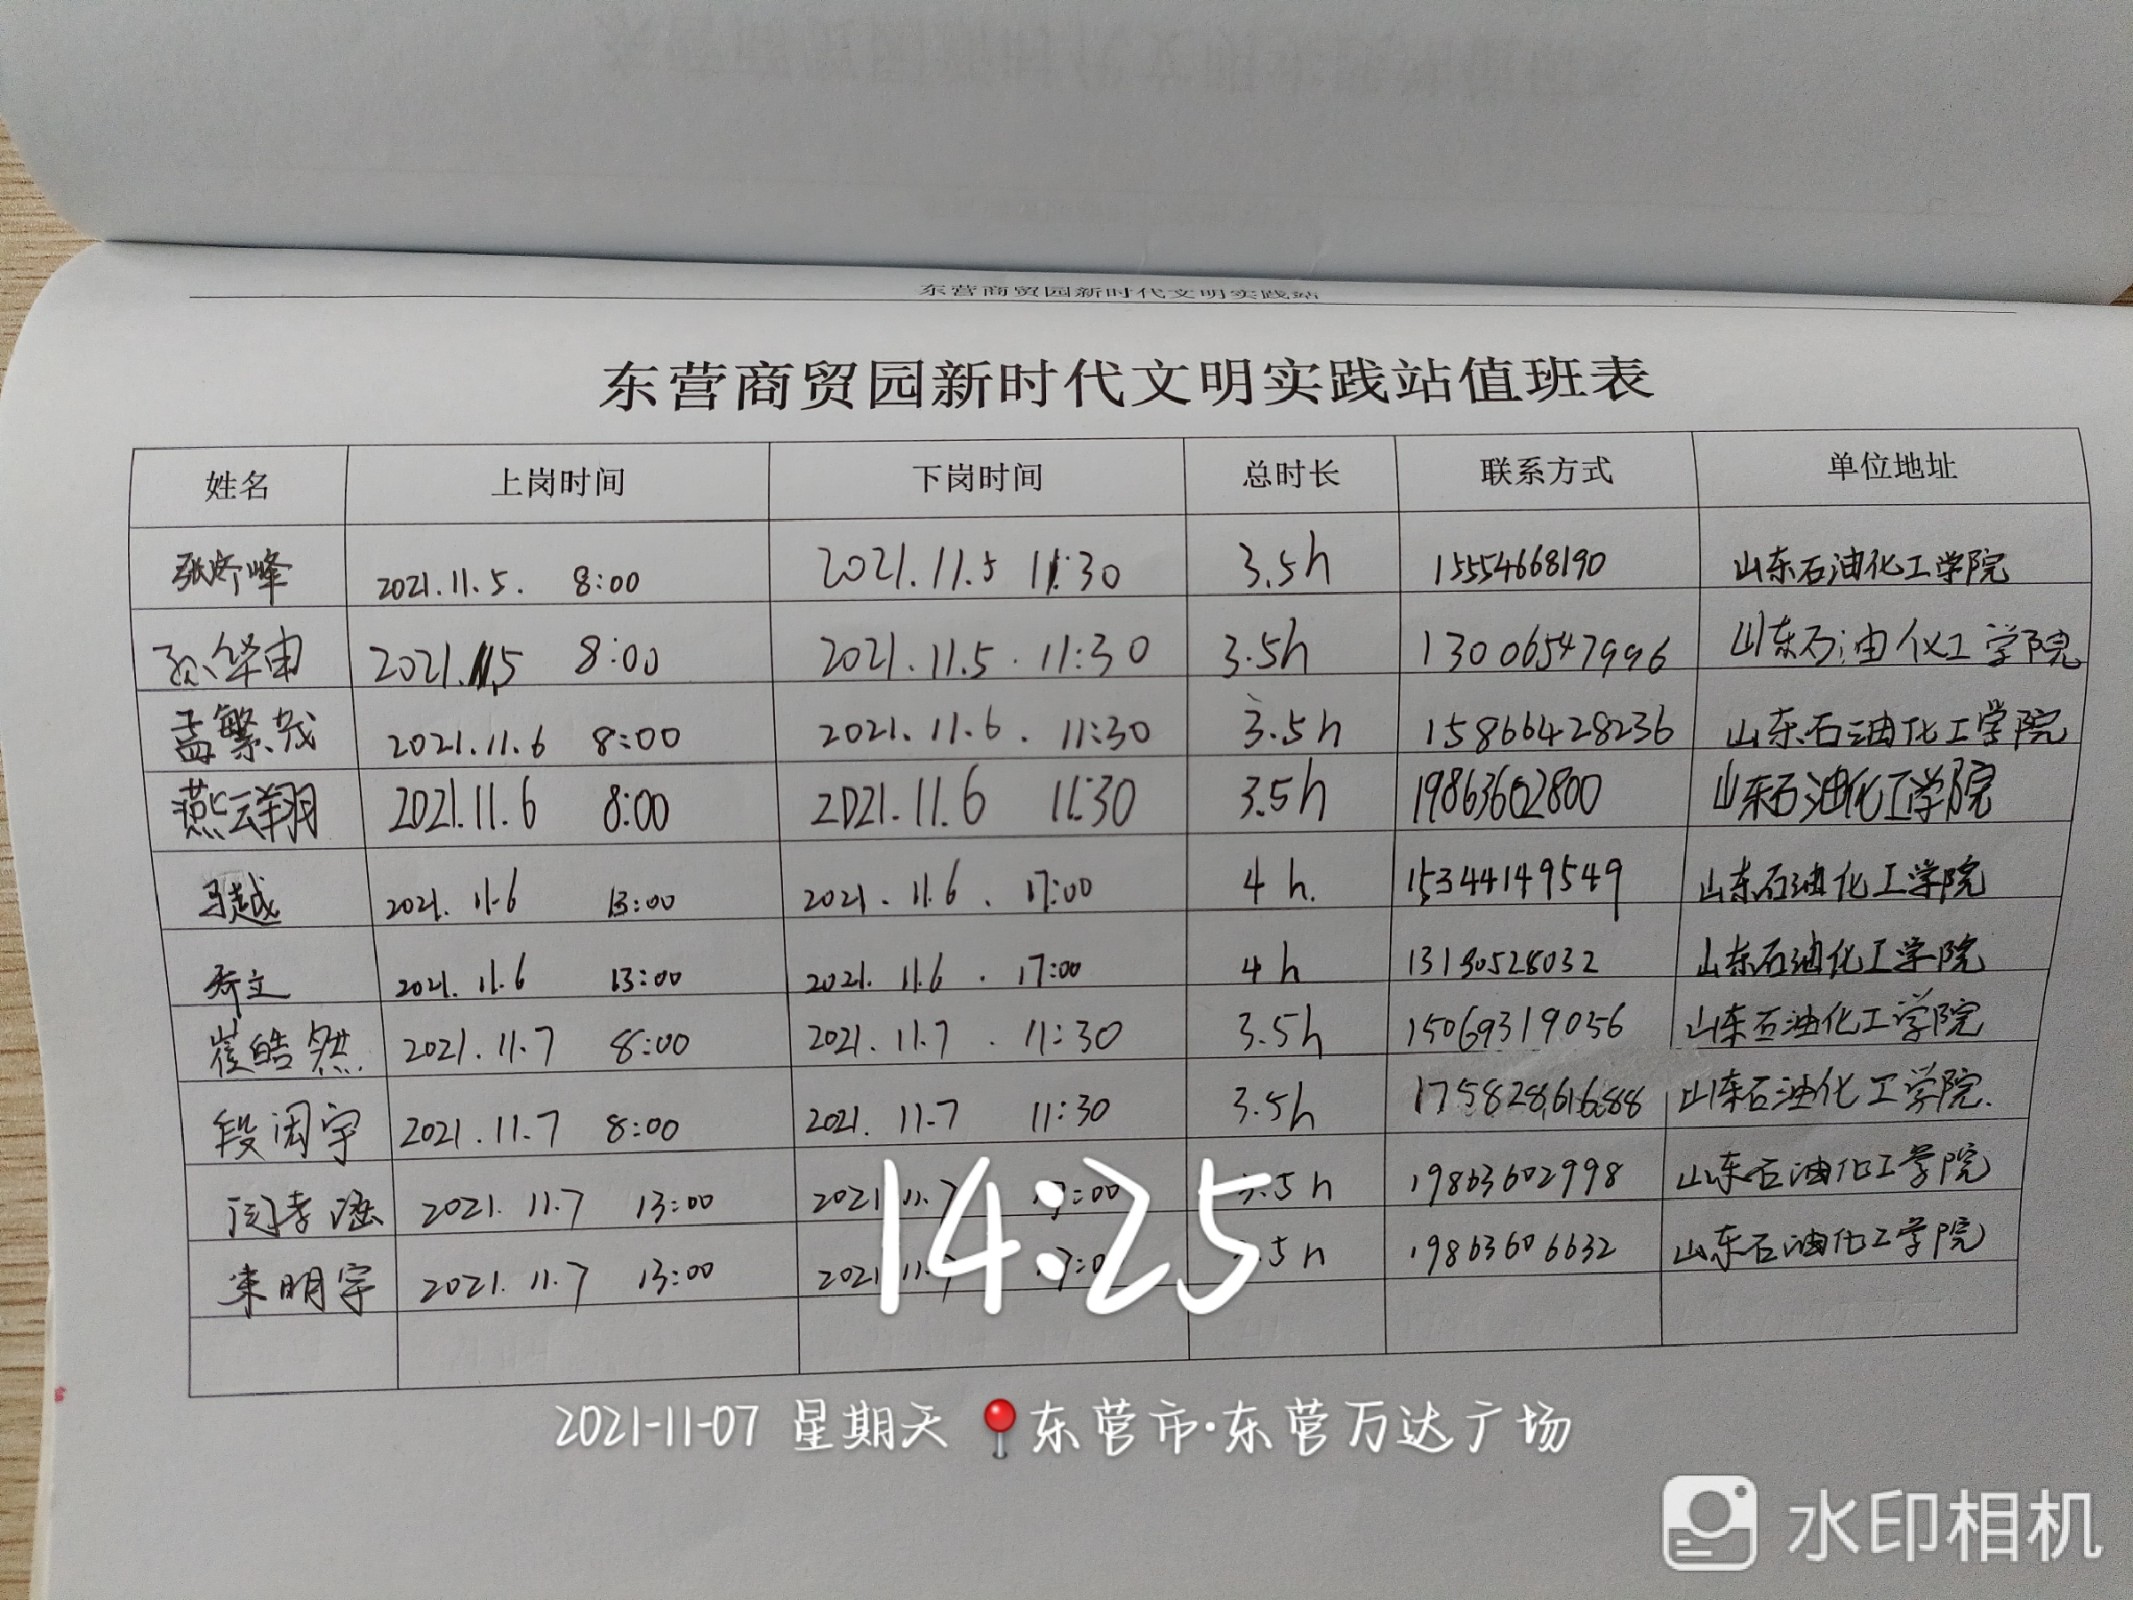 东营商贸园新时代文明实践站
东营商贸园新时代文明实践站值班表
姓名 上岗时间 下岗时间 总时长 联系方式 单位地址
2021.11.5. 8:00 2021.11.5 11:30 3.5h 15554668190 山东石油化工学院
孙华申 2021.11.5 8:00 2021.11.5. 11:30 3.5h 13006547996 山东石油化工学院
孟繁茂 2021.11.6 8:00 2021.11.6. 11:30 3.5h 15866428236 山东石油化工学院
燕云翔 2021.11.6 8:00 2021.11.6 11:30 3.5h 19863602800 山东石油化工学院
马越 2021.11.6 13:00 2021.11.6. 17:00 4h. 15344149549 山东石油化工学院
乔立 2021.11.6 13:00 2021.11.6. 17:00 4h 山东石油化工学院
崔皓然. 2021.11.7 8:00 2021.11.7. 11:30 3.5h 15069319056 山东石油化工学院
段润宇 2021.11.7 8:00 2021.11.7 11:30 3.5h 山东石油化工学院.
闫孝涵 2021.11.7 13:00 2021.11.7 :00 .5h 19863602998 山东石油化工学院
朱明宇 2021.11.7 13:00 2021.11. .5h 19863606632 山东石油化工学院
14:25
2021-11-07 星期天 东营市·东营万达广场
水印相机